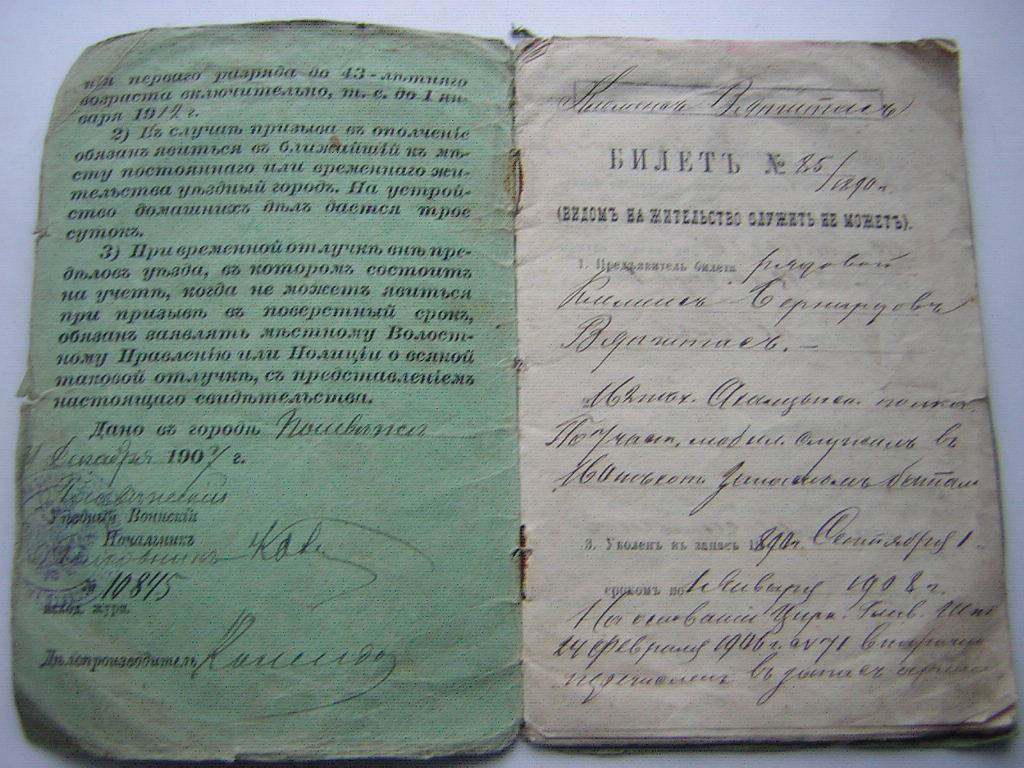 ніи перваго разряда до 43-лѣтняго
возраста включительно, т. е. до 1 ян-
варя 1917 г.
2) Въ случаѣ призыва въ ополченіе
обязанъ явиться въ ближайшій къ мѣ-
сту постояннаго или временнаго жи-
тельства уѣздный городъ. На устрой-
ство домашнихъ дѣлъ дается трое
сутокъ.
3) При временной отлучкѣ внѣ пре-
дѣловъ уѣзда, въ которомъ состоитъ
на учетѣ, когда не можетъ явиться
при призывѣ въ поверстный срокъ,
обязанъ заявлять мѣстному Волост-
ному Правленію или Полиціи о всякой
таковой отлучкѣ, съ представленіемъ
настоящаго свидѣтельства.
Дано въ городѣ
Декабря 1907 г.
Уѣздный Воинскій
Начальникъ
Полковникъ
№ 10845
исход. журн.
Дѣлопроизводитель
БИЛЕТЪ № 25/1890 г.
(ВИДОМЪ НА ЖИТЕЛЬСТВО СЛУЖИТЬ НЕ МОЖЕТЪ).
1. Предъявитель билета рядовой
Бернардовъ
162 пѣх. полка.
По части. мобил. служилъ въ
запасномъ
3. Уволенъ въ запасъ 1890 г. Сентября 1
срокомъ по 1 Января 1908 г.
На основаніи Цирк. Глав. Шт.
24 Февраля 1906 г. № 71 вторично
перечисленъ въ запасъ арміи